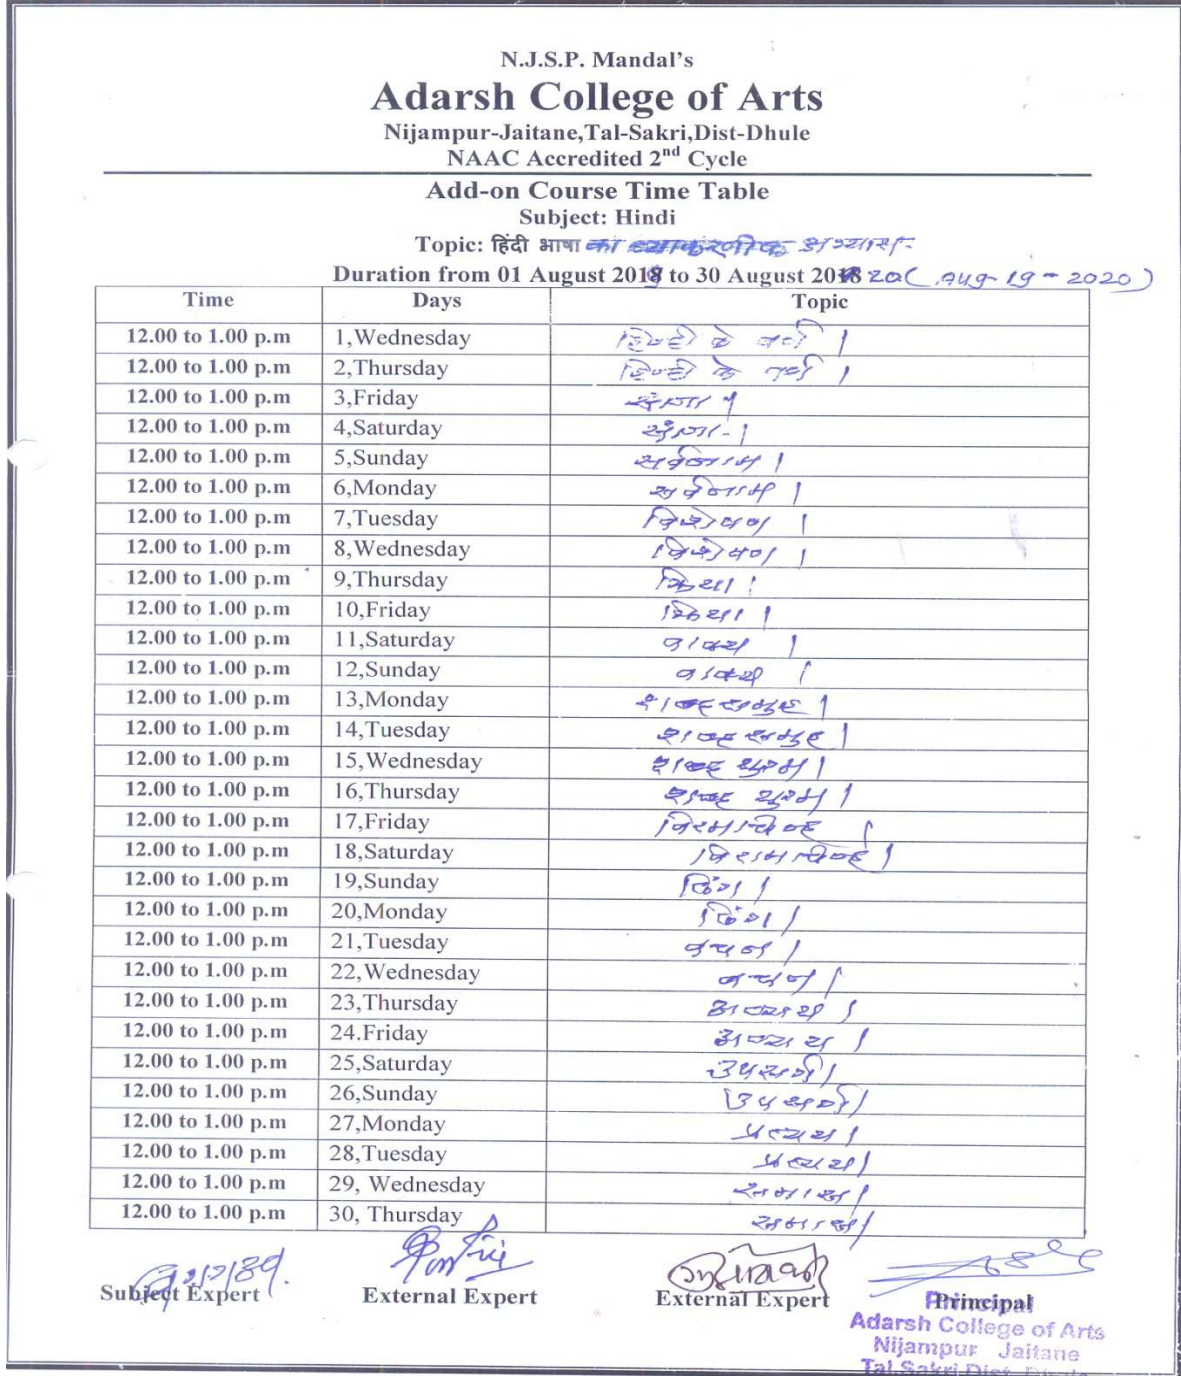 N.J.S.P. Mandal's
Adarsh College of Arts
Nijampur-Jaitane,Tal-Sakri,Dist-Dhule
NAAC Accredited 2nd Cycle
Add-on Course Time Table
Subject: Hindi
Topic: हिंदी भाषा का व्याकरणीक अभ्यास-
Duration from 01 August 2019 to 30 August 20 20 ( Aug-19-2020)
Time Days Topic
12.00 to 1.00 p.m 1,Wednesday हिन्दी के वर्ण ।
12.00 to 1.00 p.m 2,Thursday हिन्दी के वर्ण ।
12.00 to 1.00 p.m 3,Friday संज्ञा ।
12.00 to 1.00 p.m 4,Saturday संज्ञा-।
12.00 to 1.00 p.m 5,Sunday सर्वनाम ।
12.00 to 1.00 p.m 6,Monday सर्वनाम ।
12.00 to 1.00 p.m 7,Tuesday विशेषण ।
12.00 to 1.00 p.m 8,Wednesday विशेषण ।
12.00 to 1.00 p.m 9,Thursday क्रिया ।
12.00 to 1.00 p.m 10,Friday क्रिया ।
12.00 to 1.00 p.m 11,Saturday वाक्य ।
12.00 to 1.00 p.m 12,Sunday वाक्य ।
12.00 to 1.00 p.m 13,Monday शब्दसमुह ।
12.00 to 1.00 p.m 14,Tuesday शब्द समुह ।
12.00 to 1.00 p.m 15,Wednesday शब्द युग्म ।
12.00 to 1.00 p.m 16,Thursday शब्द युग्म ।
12.00 to 1.00 p.m 17,Friday विरमचिन्ह ।
12.00 to 1.00 p.m 18,Saturday विरामचिन्ह ।
12.00 to 1.00 p.m 19,Sunday लिंग ।
12.00 to 1.00 p.m 20,Monday लिंग ।
12.00 to 1.00 p.m 21,Tuesday वचन ।
12.00 to 1.00 p.m 22,Wednesday वचन ।
12.00 to 1.00 p.m 23,Thursday अव्यय ।
12.00 to 1.00 p.m 24.Friday अव्यय ।
12.00 to 1.00 p.m 25,Saturday उपसर्ग ।
12.00 to 1.00 p.m 26,Sunday उपसर्ग ।
12.00 to 1.00 p.m 27,Monday प्रत्यय ।
12.00 to 1.00 p.m 28,Tuesday प्रत्यय ।
12.00 to 1.00 p.m 29, Wednesday समास ।
12.00 to 1.00 p.m 30, Thursday समास ।
Subject Expert External Expert External Expert Principal
Principal
Adarsh College of Arts
Nijampur Jaitane
Tal.Sakri Dist. Dhule